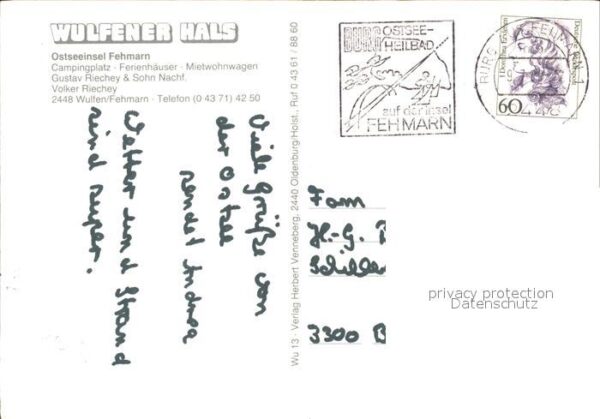 WULFENER HALS
Ostseeinsel Fehmarn
Campingplatz · Ferienhäuser · Mietwohnwagen
Gustav Riechey & Sohn Nachf.
Volker Riechey
2448 Wulfen/Fehmarn · Telefon (0 43 71) 42 50
Viele Grüße von
der Ostsee
sendet Andrea
Wetter und Strand
sind super.
Wu 13 · Verlag Herbert Venneberg, 2440 Oldenburg/Holst., Ruf 0 43 61 / 88 60
BURG OSTSEE-
HEILBAD
auf der Insel
FEHMARN
60
Deutsche Bundespost
Fam
H.-G.
Schiller
3300 B
privacy protection
Datenschutz